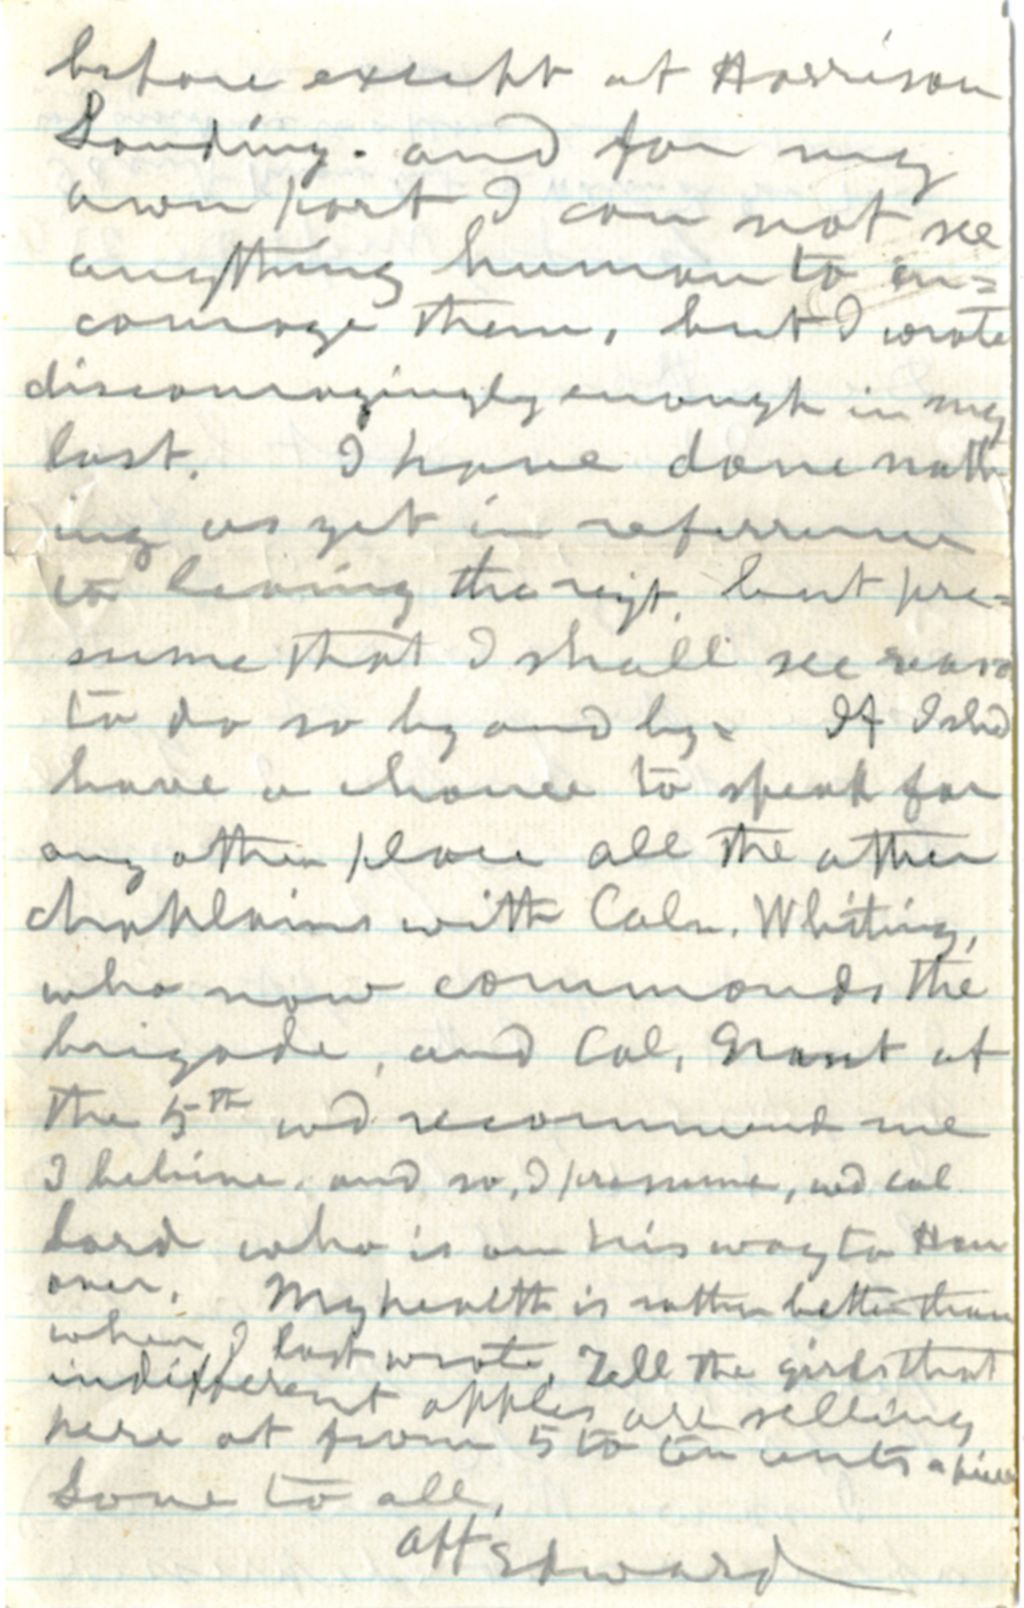 before except at Harrison
Landing. and for my
own part I can not see
anything human to en=
courage them, but I wrote
discouragingly enough in my
last. I have done noth
ing as yet in reference
to leaving the regt. but pre=
sume that I shall see reaso
to do so by and by. If I shd
have a chance to speak for
any other place all the other
chaplains with Coln. Whiting,
who now commands the
brigade, and Col. Grant of
the 5th wd recommend me
I believe. and so, I presume, wd Col
Lord who is on his way to Han
over. My health is rather better than
when I last wrote. Tell the girls that
indifferent apples are selling
here at from 5 to ten cents a piece
Love to all,
Aff Edward